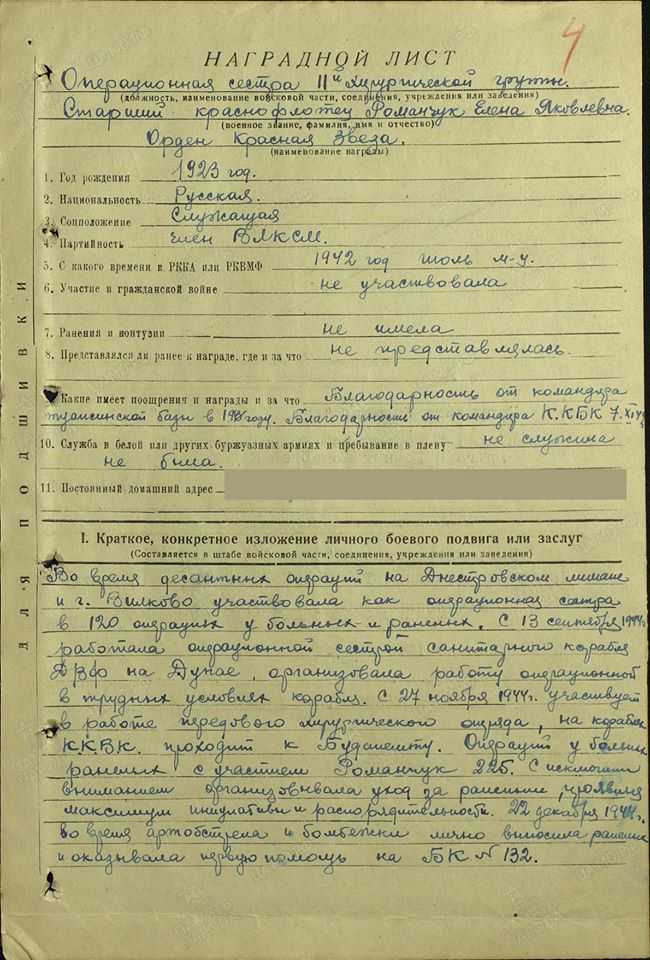 4
НАГРАДНОЙ ЛИСТ
Операционная сестра 11й хирургической группы.
(должность, наименование войсковой части, соединения, учреждения или заведения)
Старший краснофлотец Романчук Елена Яковлевна.
(военное звание, фамилия, имя и отчество)
Орден Красная Звезда.
(наименование награды)
1. Год рождения 1923 год.
2. Национальность Русская.
3. Соцположение Служащая
4. Партийность член ВЛКСМ.
5. С какого времени в РККА или РКВМФ 1942 год июль м-ц.
6. Участие в гражданской войне не участвовала
7. Ранения и контузии не имела
8. Представлялся ли ранее к награде, где и за что не представлялась.
Какие имеет поощрения и награды и за что Благодарность от командира
туапсинской базы в году. Благодарность от командира К.КБК 7.XI
10. Служба в белой или других буржуазных армиях и пребывание в плену не служила
не была.
11. Постоянный домашний адрес
I. Краткое, конкретное изложение личного боевого подвига или заслуг
(Составляется в штабе войсковой части, соединения, учреждения или заведения)
Во время десантных операций на Днестровском лимане
и г. Вилково участвовала как операционная сестра
в 120 операциях у больных и раненых. С 13 сентября 1944г.
работала операционной сестрой санитарного корабля
ДВФ на Дунае, организовала работу операционной
в трудных условиях корабля. С 27 ноября 1944г. участвует
в работе передового хирургического отряда, на корабле
К.К.В.К. проходит к Будапешту. Операций у больных
раненых с участием Романчук 225. С
вниманием организовывала уход за ранеными, проявив
максимум инициативы и распорядительности. 22 декабря 1944г.
во время артобстрела и бомбежки лично выносила раненых
и оказывала первую помощь на БК N 132.
ДЛЯ ПОДШИВКИ